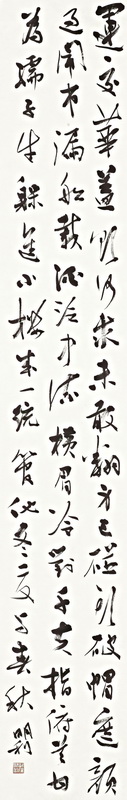 運交華蓋欲何求未敢翻身已碰頭破帽遮顏
過鬧市漏船載酒泛中流橫眉冷對千夫指俯首甘
為孺子牛躲進小樓成一統管他冬夏與春秋